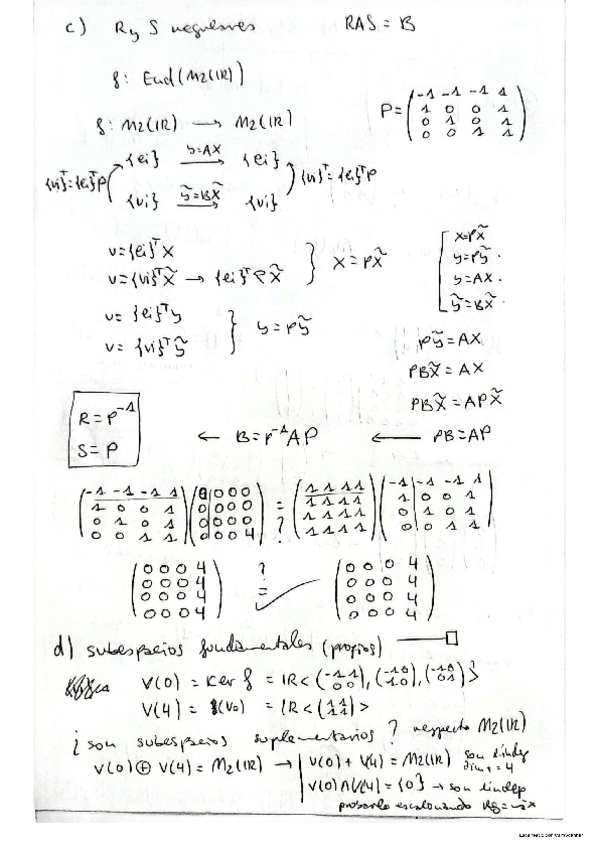 c) R y S regulares RAS = B
f: End(M2(IR))
f: M2(IR) → M2(IR)
P = (-1 -1 -1 1
1 0 0 1
0 1 0 1
0 0 1 1)
{ei} y=AX → {ei}
{vi}ᵀ={ei}ᵀP {vi}ᵀ={ei}ᵀP
{vi} ỹ=BX̃ → {vi}
v={ei}ᵀX
v={vi}ᵀX̃ → {ei}ᵀPX̃ } X=PX̃
v={ei}ᵀy
v={vi}ᵀỹ } y=Pỹ
X=PX̃
y=Pỹ.
y=AX.
ỹ=BX̃.
Pỹ=AX
PBX̃=AX
PBX̃=APX̃
R=P⁻¹
S=P
← B=P⁻¹AP ← PB=AP
(-1 -1 -1 1) (0 0 0 0) = (1 1 1 1) (-1 -1 -1 1)
(1 0 0 1) (0 0 0 0) ? (1 1 1 1) (1 0 0 1)
(0 1 0 1) (0 0 0 0) (1 1 1 1) (0 1 0 1)
(0 0 1 1) (0 0 0 4) (1 1 1 1) (0 0 1 1)
(0 0 0 4) ? (0 0 0 4)
(0 0 0 4) = (0 0 0 4)
(0 0 0 4) ✓ (0 0 0 4)
(0 0 0 4) (0 0 0 4)
d) subespacios fundamentales (propios)
V(0) = Ker f = IR<(-1 1 / 0 0), (-1 0 / 1 0), (-1 0 / 0 1)>
V(4) = = IR<(1 1 / 1 1)>
¿son subespacios suplementarios? respecto M2(IR)
V(0) ⊕ V(4) = M2(IR) → | V(0) + V(4) = M2(IR) son lindep dim = 4
V(0) ∩ V(4) = {0} → son lindep
probarlo escalonando Rg = máx